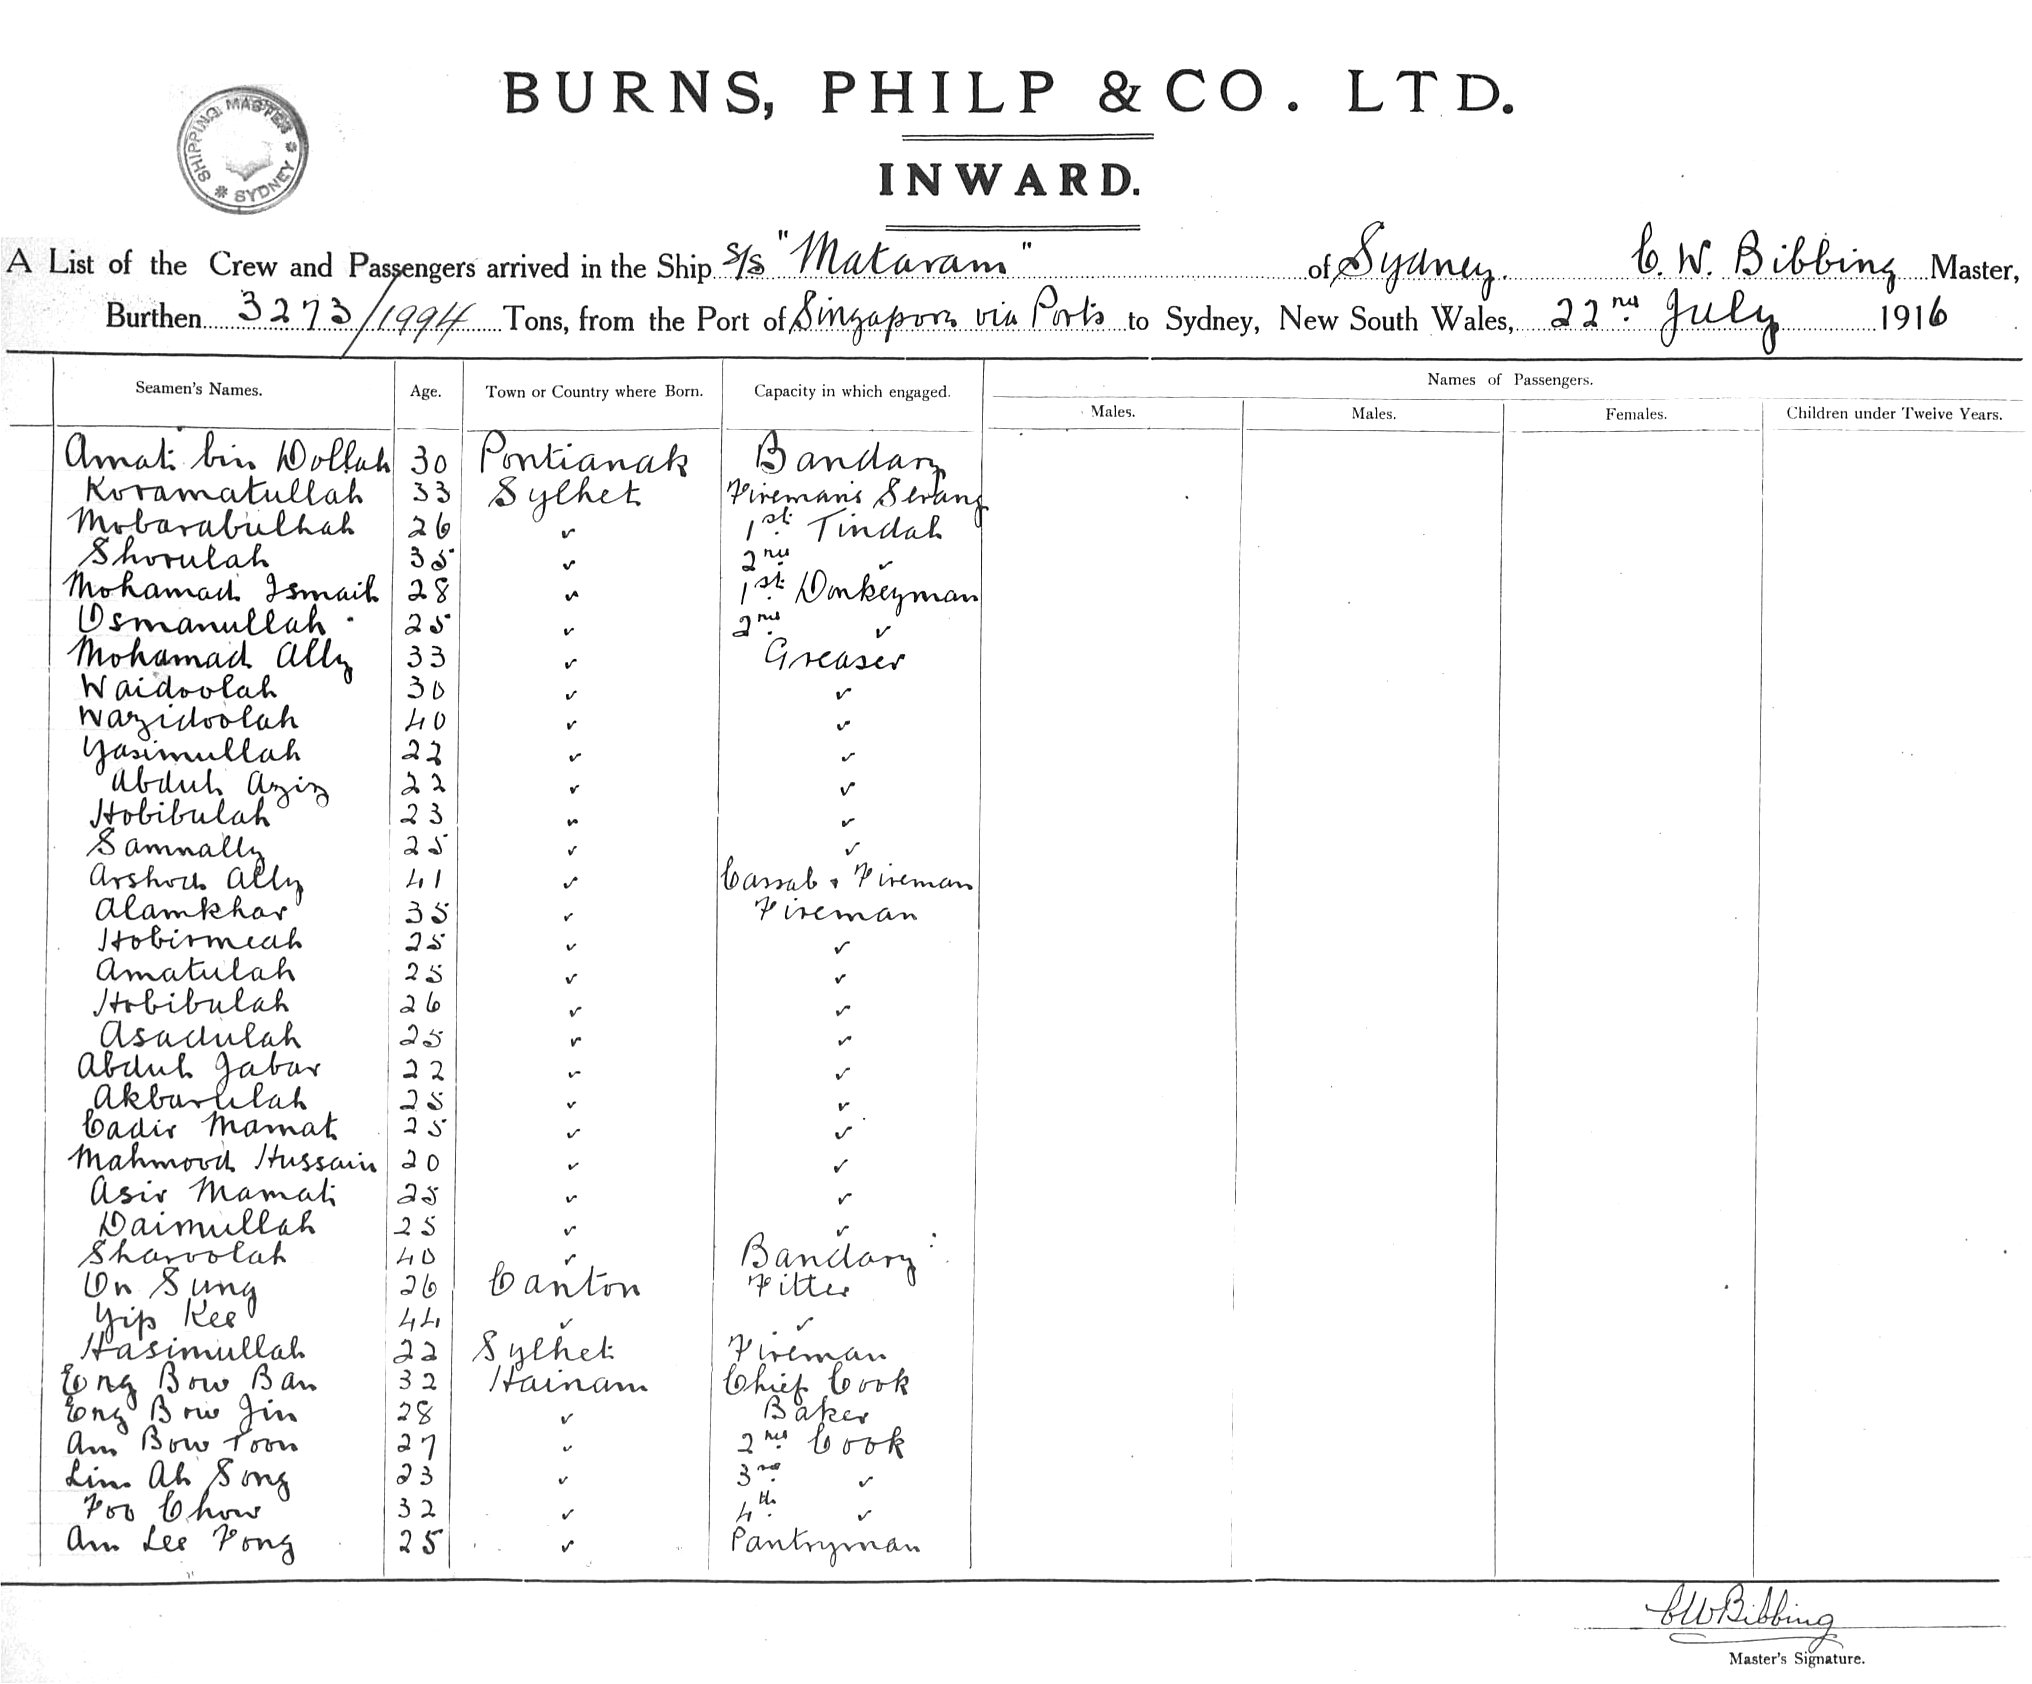 BURNS, PHILP & CO. LTD.
SHIPPING MASTER
* SYDNEY *
INWARD.
A List of the Crew and Passengers arrived in the Ship S/S "Mataram" of Sydney. C. W. Bibbing Master,
Burthen 3273/1994 Tons, from the Port of Singapore via Ports to Sydney, New South Wales, 22nd July 1916
Seamen's Names. Age. Town or Country where Born. Capacity in which engaged. Names of Passengers.
Males. Males. Females. Children under Twelve Years.
Amat bin Dollah 30 Pontianak Bandary
Koramatullah 33 Sylhet Fireman's Serang
Mobarabullah 26 ✓ 1st Tindal
Shorulah 35 ✓ 2nd ✓
Mohamad Ismail 28 ✓ 1st Donkeyman
Osmanullah 25 ✓ 2nd ✓
Mohamad Ally 33 ✓ Greaser
Waidoolah 30 ✓ ✓
Wazidoolah 40 ✓ ✓
Yasimullah 22 ✓ ✓
Abdul Aziz 22 ✓ ✓
Hobibulah 23 ✓ ✓
Samnally 25 ✓ ✓
Arshod Ally 41 ✓ Cassab & Fireman
Alamkhar 35 ✓ Fireman
Hobirmeah 25 ✓ ✓
Amatulah 25 ✓ ✓
Hobibulah 26 ✓ ✓
Asadulah 25 ✓ ✓
Abdul Jabar 22 ✓ ✓
Akbarulah 25 ✓ ✓
Cadir Mamat 25 ✓ ✓
Mahmood Hussain 20 ✓ ✓
Asir Mamat 25 ✓ ✓
Daimullah 25 ✓ ✓
Sharoolah 40 ✓ Bandary
On Sung 26 Canton Fitter
Yip Kee 44 ✓ ✓
Hasimullah 22 Sylhet Fireman
Eng Bow Ban 32 Hainam Chief Cook
Eng Bow Jin 28 ✓ Baker
Am Bow Toon 27 ✓ 2nd Cook
Lim Ah Song 23 ✓ 3rd ✓
Foo Chow 32 ✓ 4th ✓
Am Lee Fong 25 ✓ Pantryman
CW Bibbing
Master's Signature.